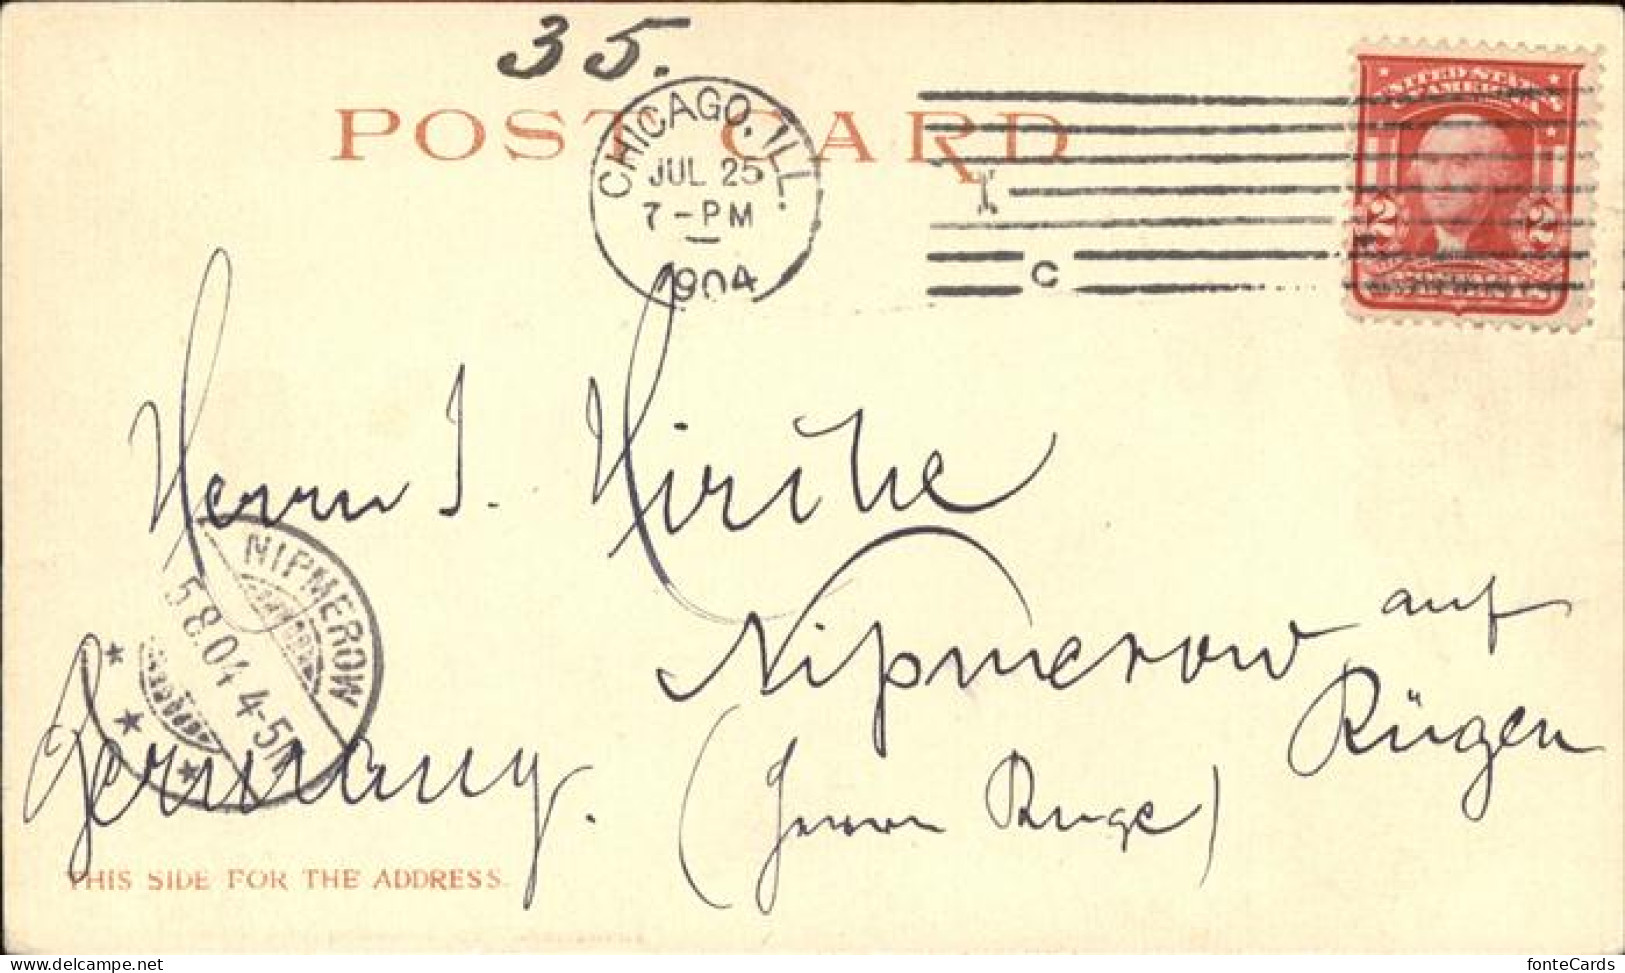 35.
POST CARD
CHICAGO, ILL.
JUL 25
7-PM
1904
C
UNITED STATES
OF AMERICA
2 2
Herrn J.
Nipmerow auf
Rügen
Germany.
NIPMEROW
5.8.04 4-5N
THIS SIDE FOR THE ADDRESS.
delcampe.net
fonteCards